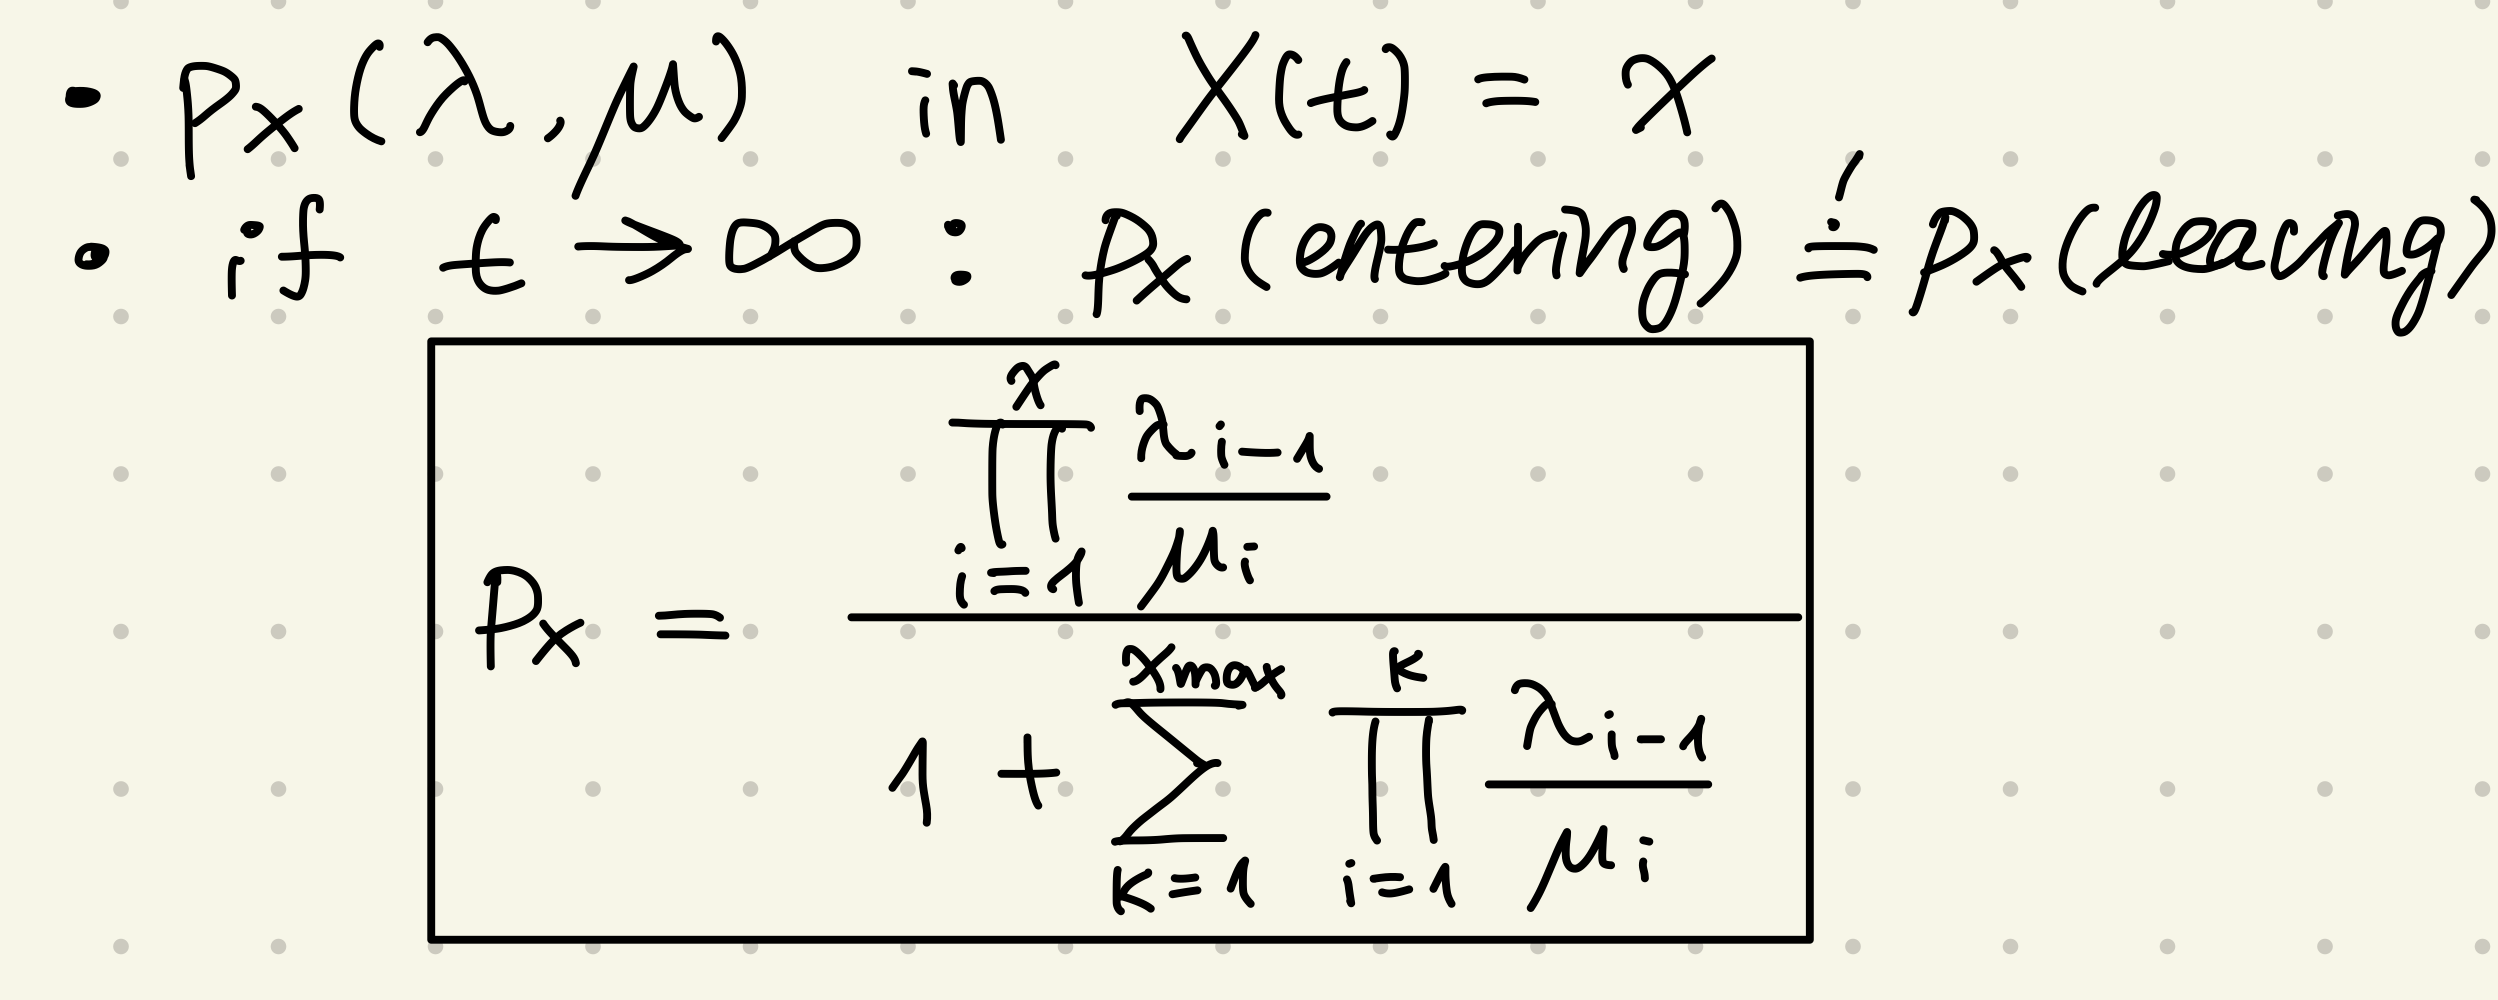 - Px (λ, μ) in X(t) = x
• if t → ∞ : Px (entering) =! Px (leaving)
Px = ∏_{i=1}^{x} λi-1 / μi / 1 + ∑_{k=1}^{xmax} ∏_{i=1}^{k} λi-1 / μi